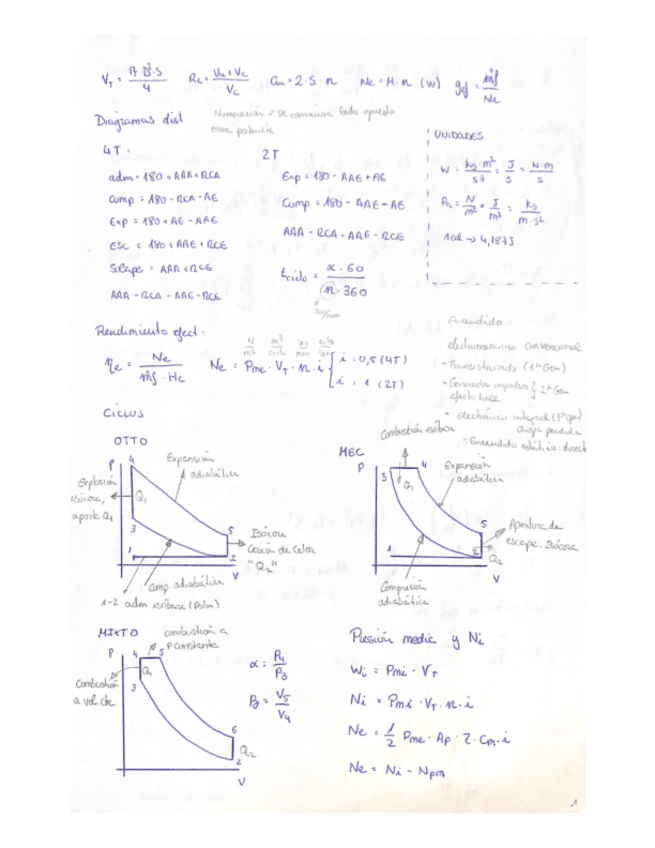 V_T = π·D²·S / 4   R_c = V_u + V_c / V_c   C_m = 2·S·n   Ne = M·n (W)   g_ef = ṁf / Ne
Diagramas dist
Numeración = se comienza lado opuesto
toma potencia
4T:
adm = 180 + AAA + RCA
Comp = 180 - RCA - AE
Exp = 180 + AE - AAE
ESC = 180 + AAE + RCE
Solape = AAA + RCE
AAA - RCA - AAE - RCE
2T
Exp = 180 - AAE + AE
Comp = 180 - AAE - AE
AAA - RCA - AAE - RCE
t_ciclo = α · 60 / n · 360
rev/min
UNIDADES
W = kg·m² / s³ = J / s = N·m / s
Pa = N / m² = J / m³ = kg / m·s²
1cal → 4,187J
Rendimiento efect:
ηe = Ne / ṁf · Hc
N/m² m³/ciclo rev/min ciclo/rev
Ne = Pme · V_T · n · i { i = 0,5 (4T)
i = 1 (2T)
Encendido =
electromecánico convencional
- Transistorizado (1ª Gen)
- Generador impulsos } 2ª Gen
efecto hall
- electrónico integral (3ª gen)
chispa perdida
- Encendido estático: direct
Ciclos
OTTO
P 4 3 1 5 2 V
Explosión
isócora,
aporte Q1
Q1
Expansión
adiabática
Isócora
Cesión de Calor
"Q2"
Comp adiabática
1-2 adm isóbara (Patm)
MEC
Combustión isóbara
P 3 4 1 5 2 V
Q1
Expansión
adiabática
Apertura de
escape. Isócora
Q2
Compresión
adiabática
MIXTO
combustión a
P constante
P 4 5 3 6 2 V
Q1
Combustión
a vol cte
Q2
α = P4 / P3
β = V5 / V4
Presión media y Ni
Wi = Pmi · V_T
Ni = Pmi · V_T · n · i
Ne = 1/2 Pme · Ap · Z · Cm · i
Ne = Ni - Npm
1